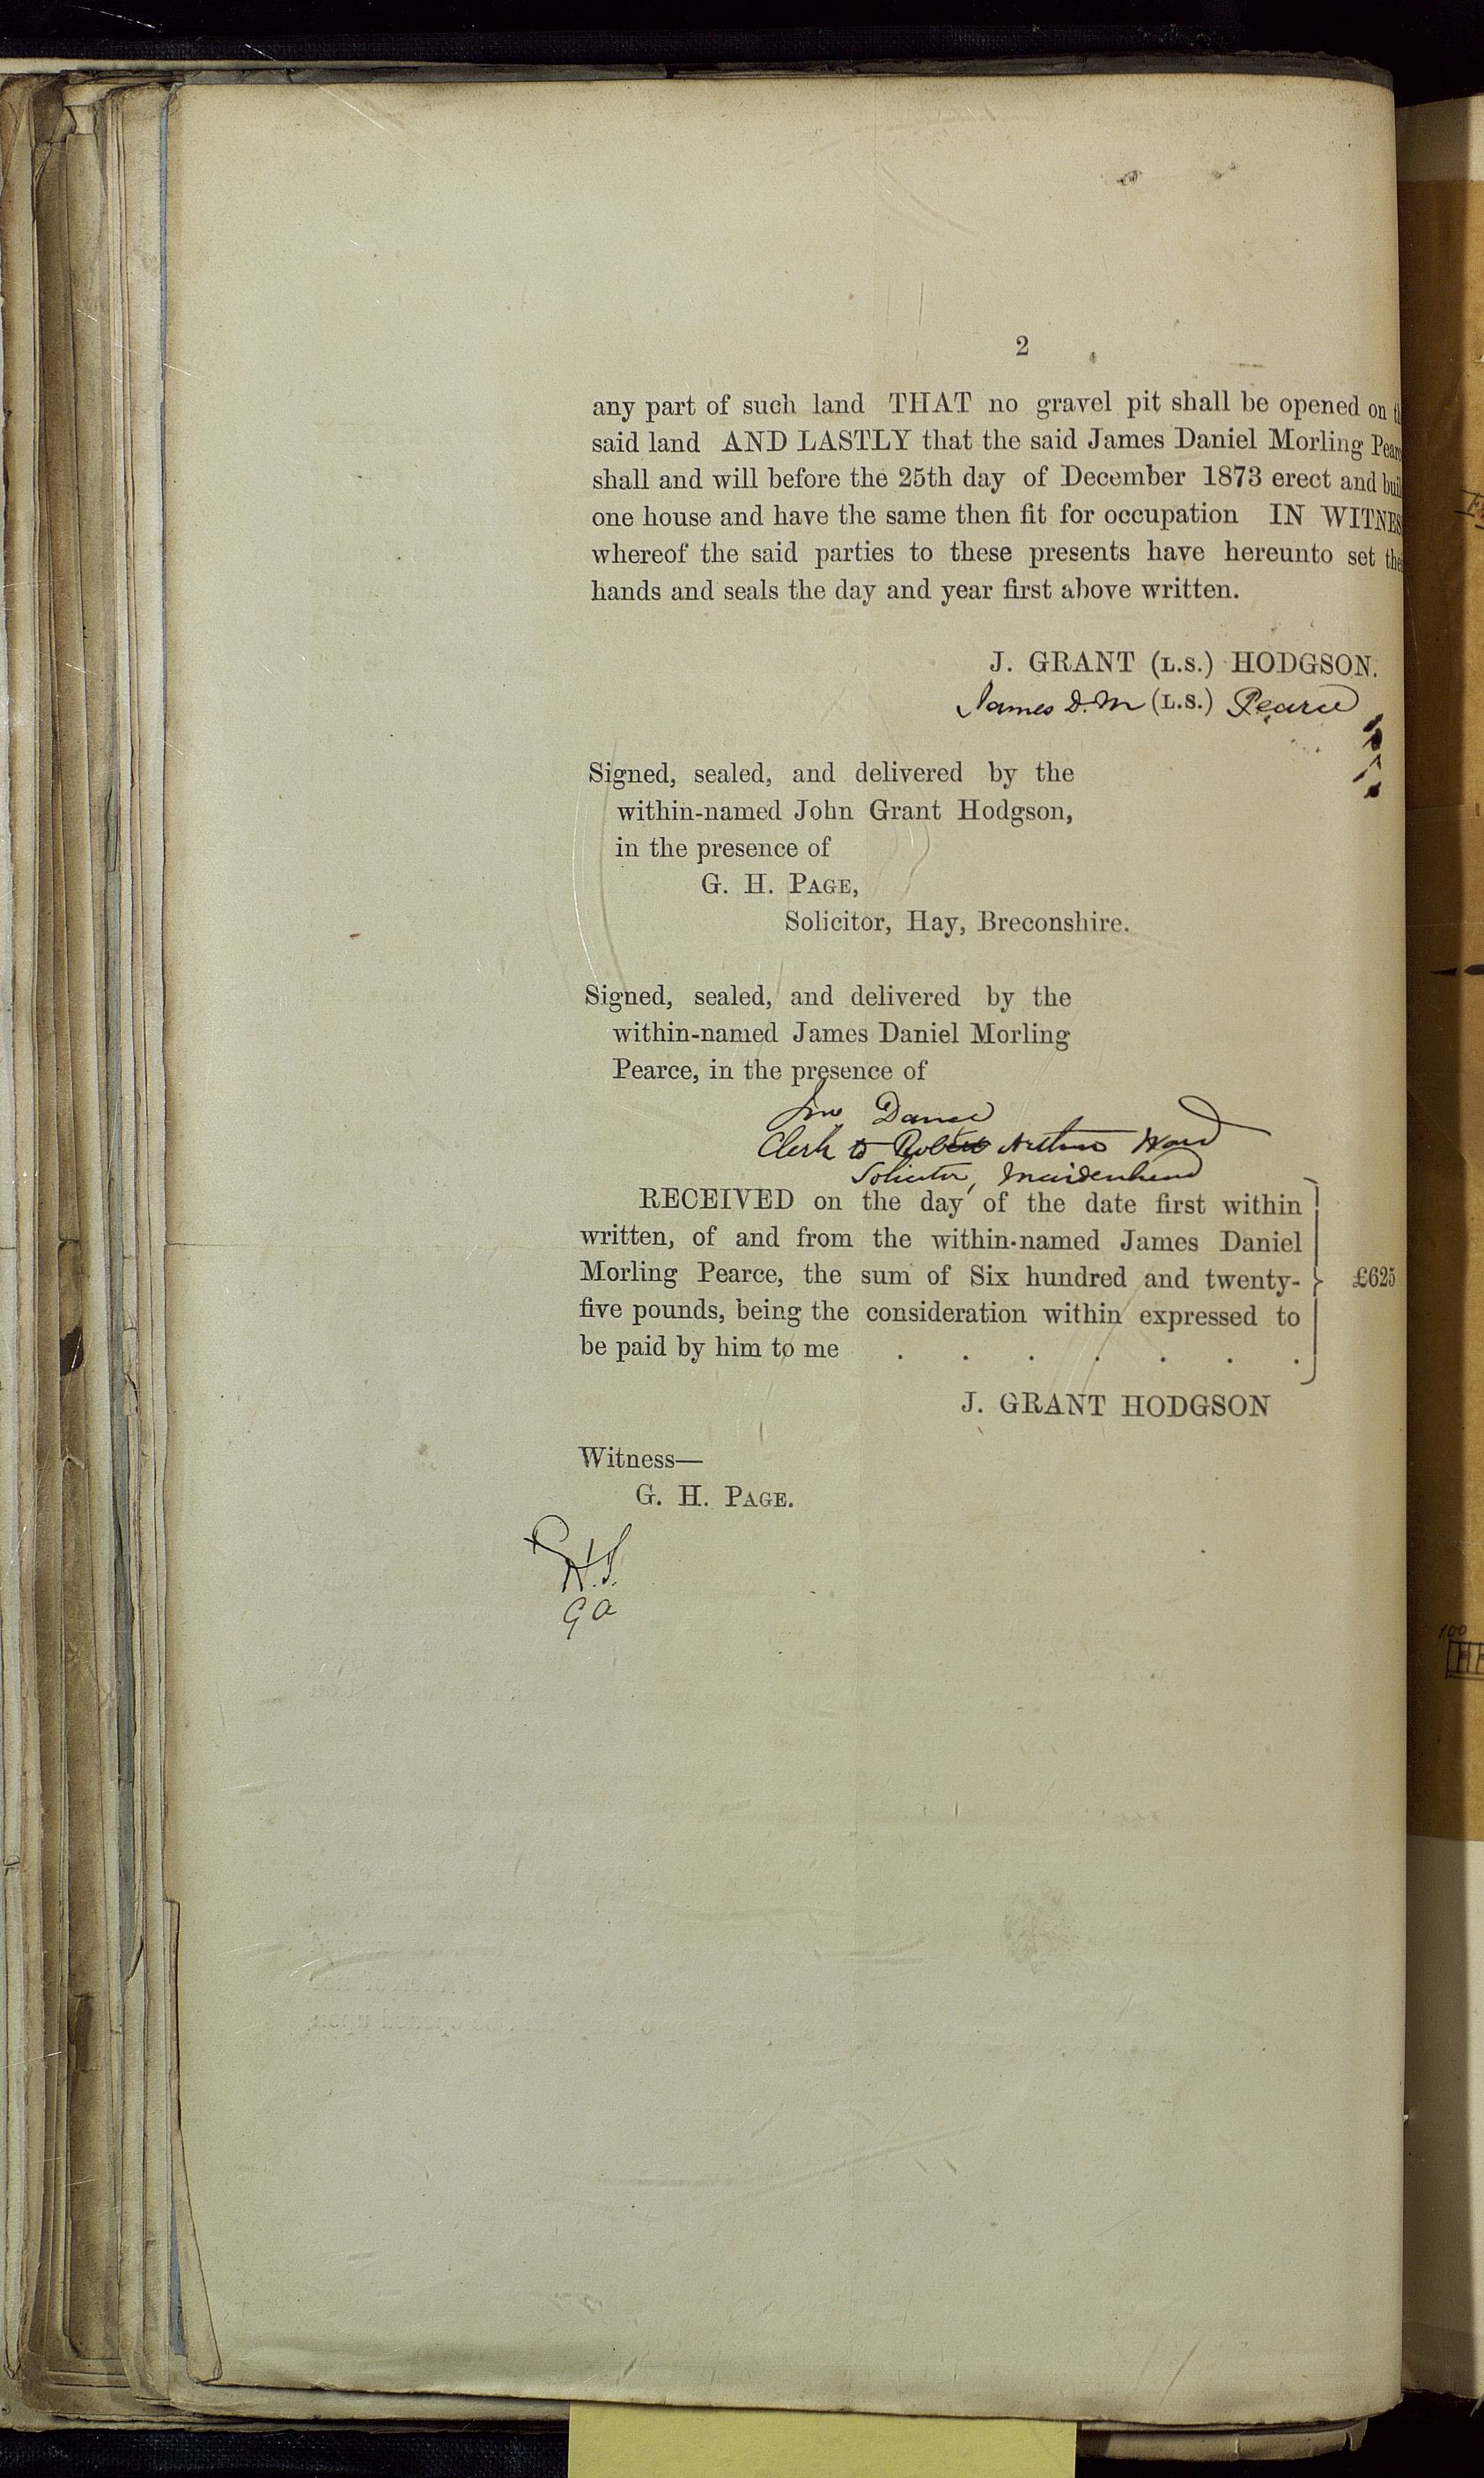 2
any part of such land THAT no gravel pit shall be opened on th
said land AND LASTLY that the said James Daniel Morling Pear
shall and will before the 25th day of December 1873 erect and buil
one house and have the same then fit for occupation IN WITNES
whereof the said parties to these presents have hereunto set the
hands and seals the day and year first above written.
J. GRANT (L.S.) HODGSON.
James D. M (L.S.) Pearce
Signed, sealed, and delivered by the
within-named John Grant Hodgson,
in the presence of
G. H. PAGE,
Solicitor, Hay, Breconshire.
Signed, sealed, and delivered by the
within-named James Daniel Morling
Pearce, in the presence of
Clerk to Robert Arthur Ward
Solicitor, Maidenhead
RECEIVED on the day of the date first within
written, of and from the within-named James Daniel
Morling Pearce, the sum of Six hundred and twenty-
five pounds, being the consideration within expressed to
be paid by him to me . . . . . . .
£625
J. GRANT HODGSON
Witness—
G. H. PAGE.
100